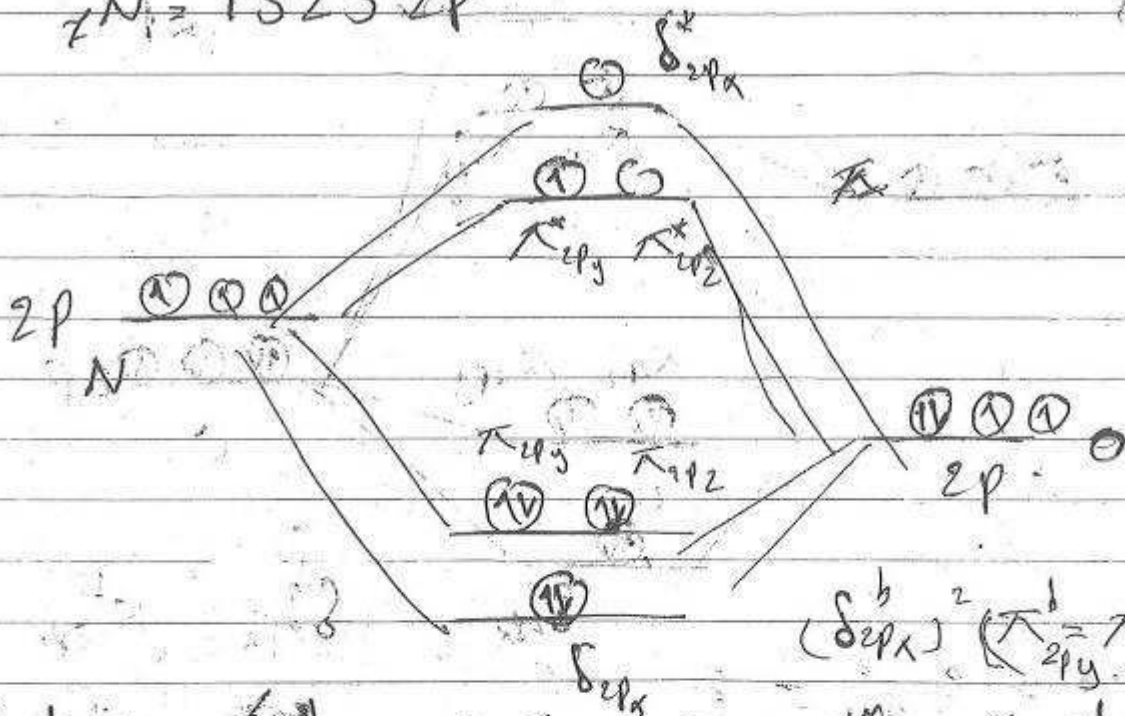 7N = 1S 2S 2P
δ*2px
π*2py π*2pz
2P
N
π2py π2pz
O
2p
(δb2px)2 (πb2py =
δ2px